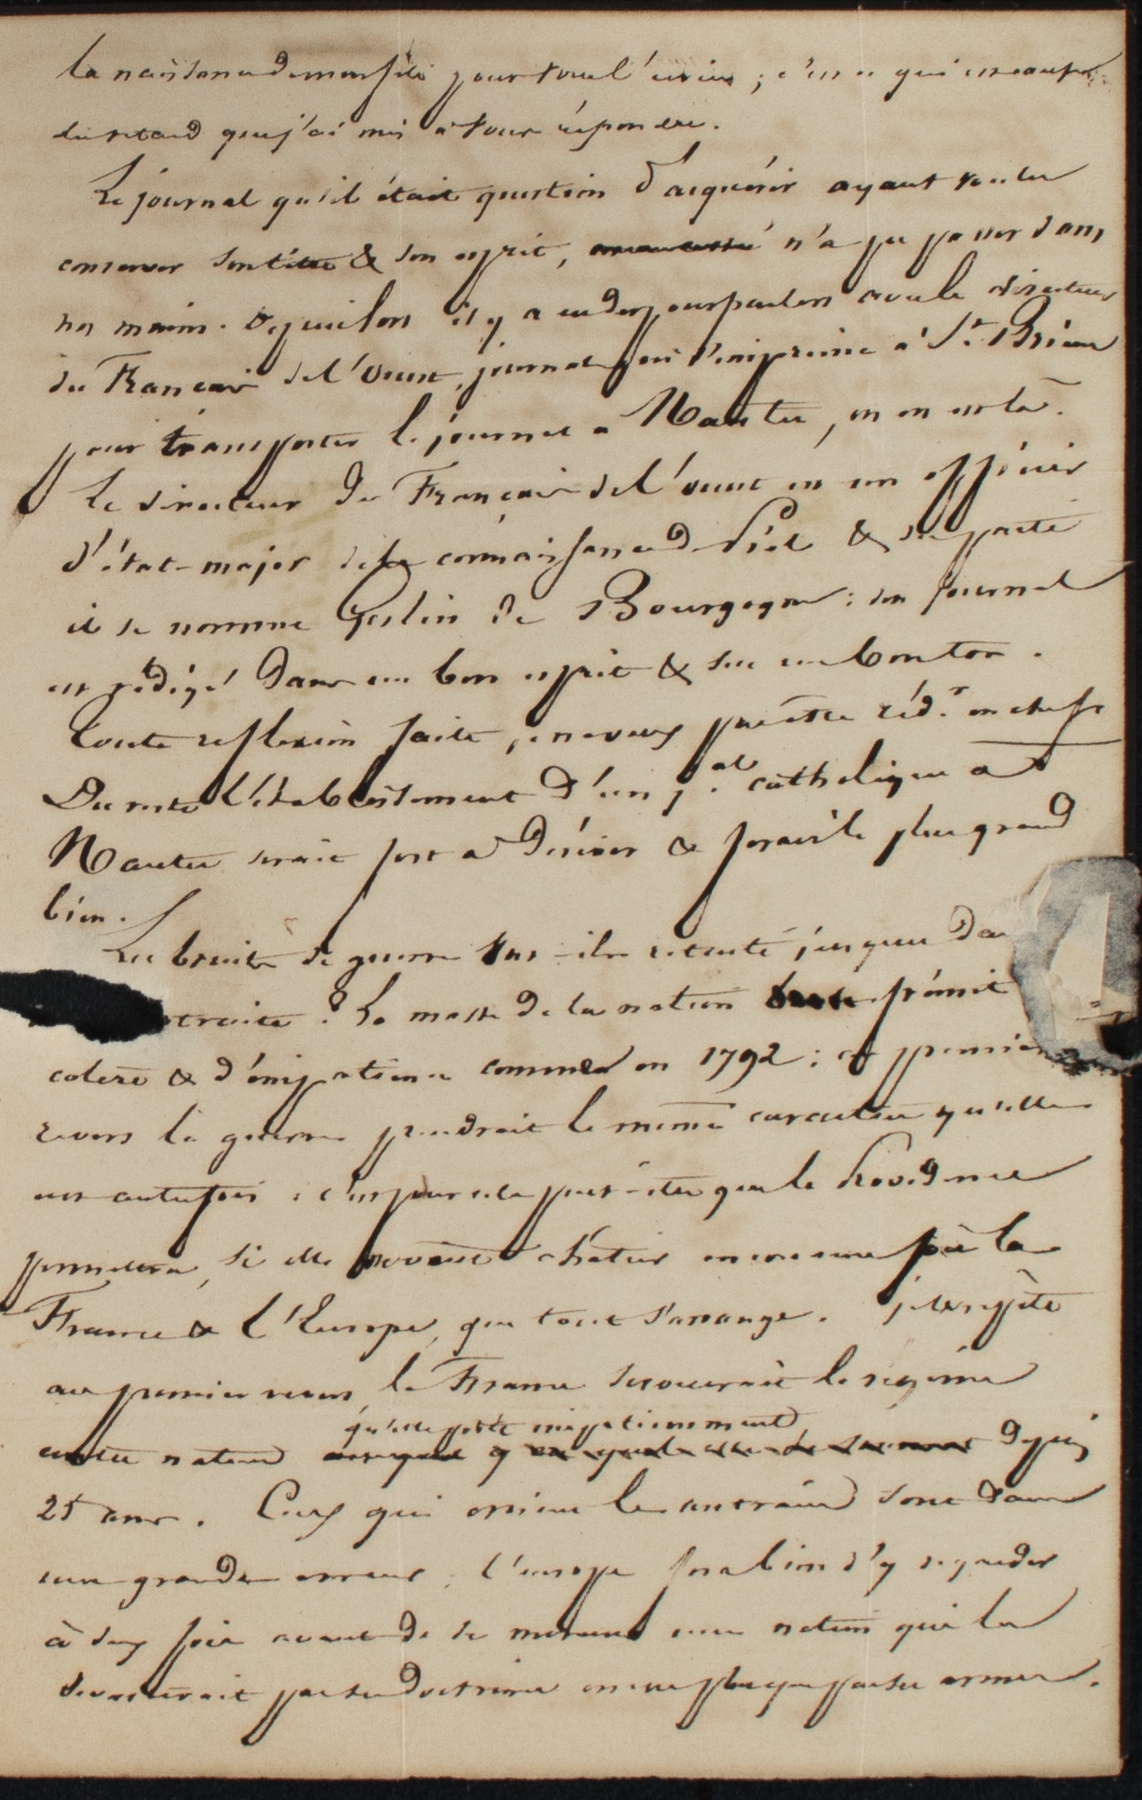 la naissance de mon fils pour vous l'écrire ; c'est ce qui est cause
du retard que j'ai mis à vous répondre.
Le journal qu'il était question d'acquérir ayant voulu
conserver son titre & son esprit, n'a pu passer dans
nos mains. Depuis lors il y a eu des pourparlers avec le directeur
du Français de l'Ouest, journal qui s'imprime à St. Brieuc
pour transporter le journal à Nantes, on en est là.
Le directeur du Français de l'ouest est un officier
d'état-major de la connaissance de & du parti
il se nomme Geslin de Bourgogne : son journal
est rédigé dans un bon esprit & sur un bon ton.
Toute reflexion faite, je ne veux pas être réd.r en chef
Du reste l'établissement d'un j.al catholique à
Nantes serait fort à désirer & ferait le plus grand
bien.
Les bruits de guerre ont-ils retenti jusques dans
retraite ? La masse de la nation frémit
colère & d'impatience comme en 1792 : au premier
revers la guerre prendrait le même caractère qu'elle
eut autrefois : c'est pour cela peut-être que la Providence
permettra, si elle ne veut châtier encore une fois la
France & l'Europe, que tout s'arrange. je le répète
au premier revers la France secouerait le régime
contre nature qu'elle porte impatiemment depuis
25 ans. Ceux qui croient le contraire sont dans
une grande erreur : l'europe fera bien d'y regarder
à deux fois avant de se mesurer avec une nation qui la
dévasterait par ses doctrines encore plus que par ses armes.